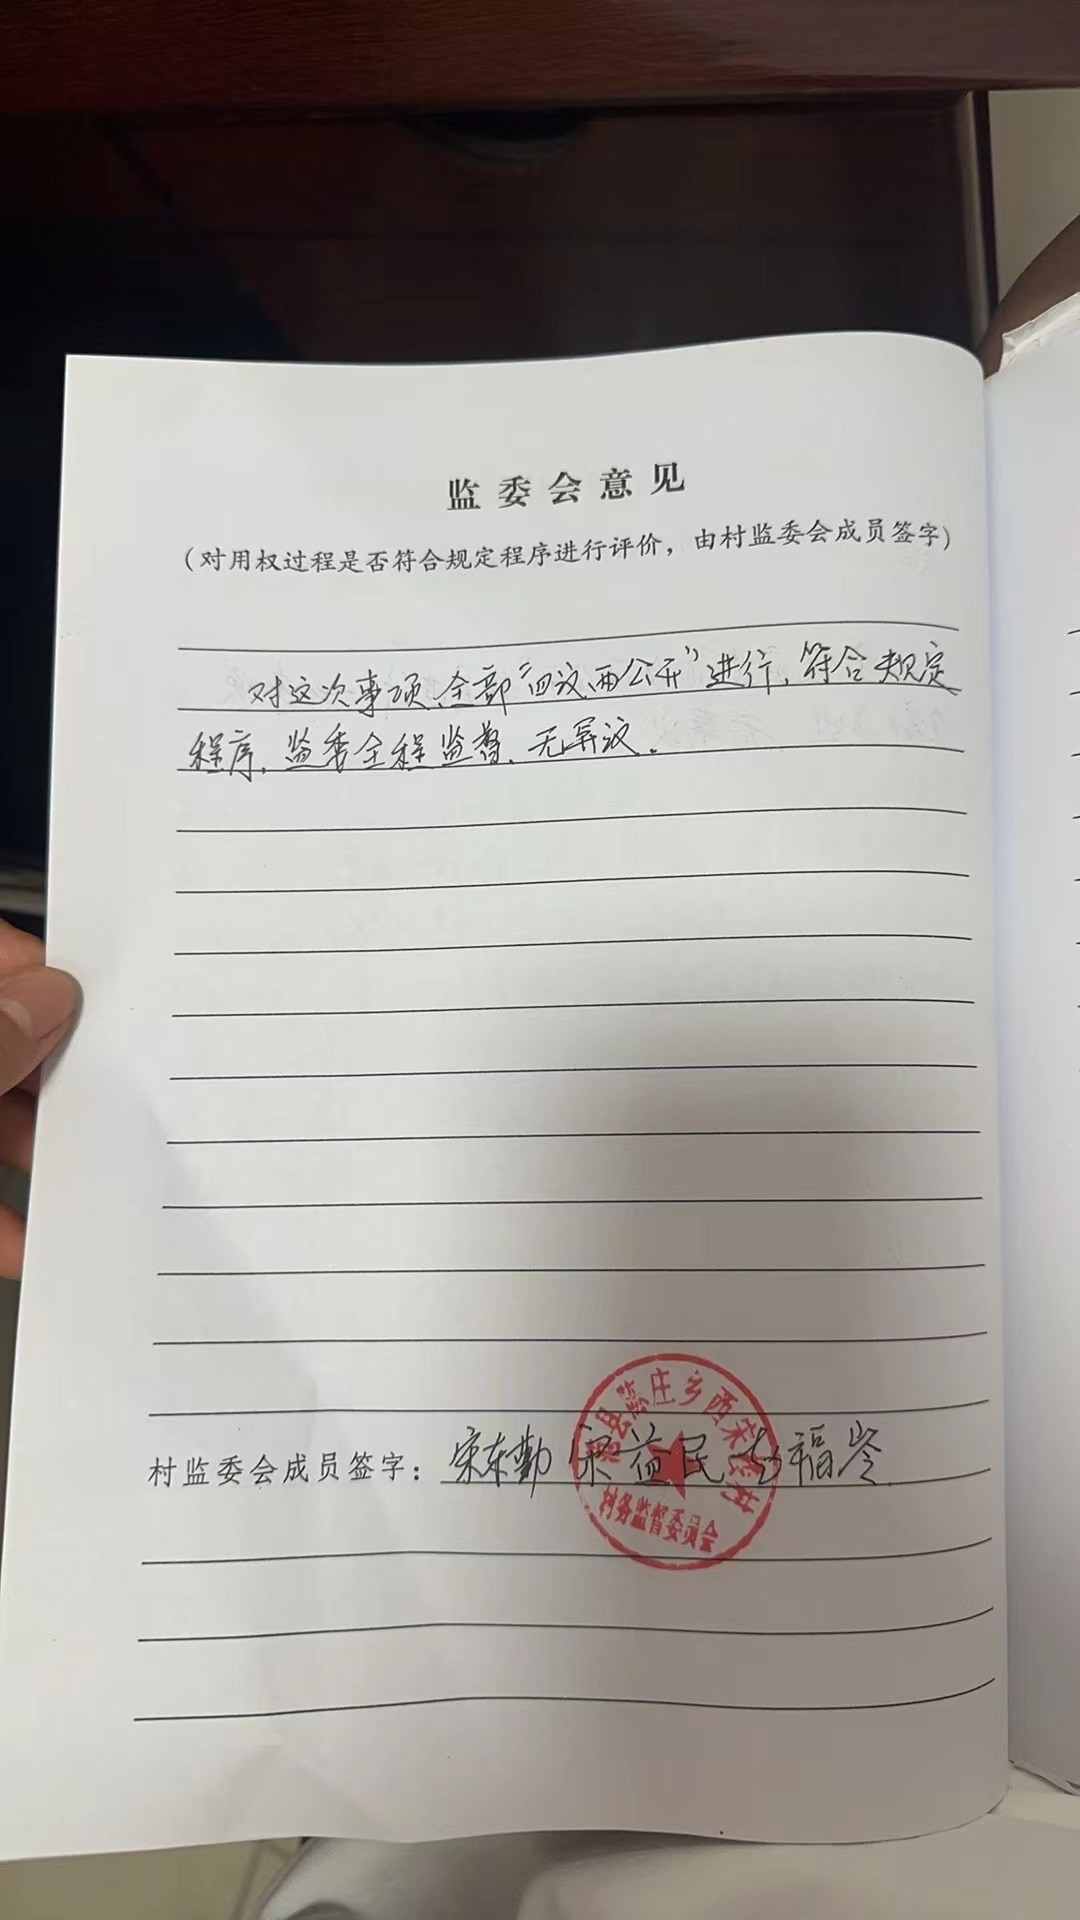 监委会意见
(对用权过程是否符合规定程序进行评价，由村监委会成员签字)
对这次事项全部“四议两公开”进行，符合规定
程序，监委全程监督，无异议。
村监委会成员签字：宋东勤 宋益民 赵福岺
县陈庄乡西宋村
村务监督委员会